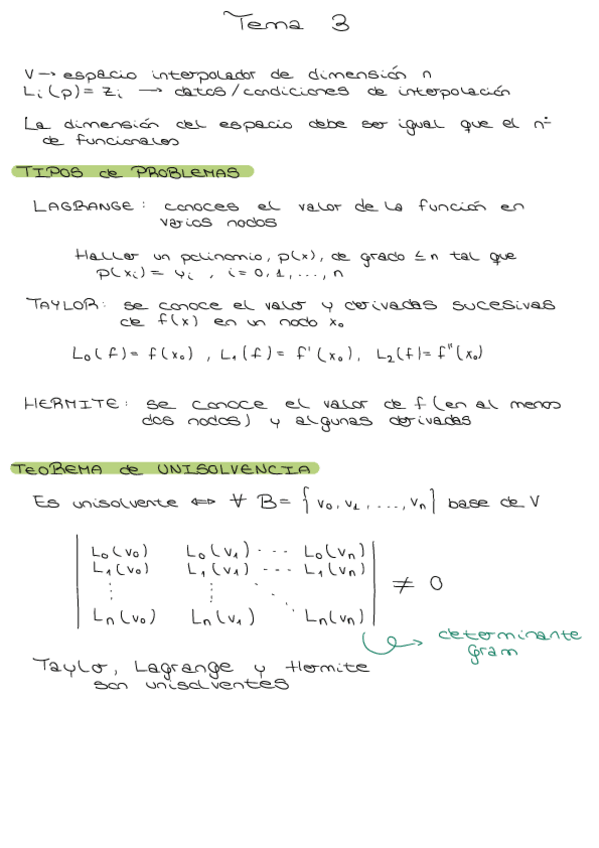 Tema 3
V → espacio interpolador de dimensión n
Li(p) = zi → datos/condiciones de interpolación
La dimensión del espacio debe ser igual que el nº
de funcionales
TIPOS de PROBLEMAS
LAGRANGE: conoces el valor de la función en
varios nodos
Hallar un polinomio, p(x), de grado ≤ n tal que
p(xi) = yi , i = 0, 1, ..., n
TAYLOR: se conoce el valor y derivadas sucesivas
de f(x) en un nodo x₀
L₀(f) = f(x₀) , L₁(f) = f'(x₀), L₂(f) = f''(x₀)
HERMITE: se conoce el valor de f (en al menos
dos nodos) y algunas derivadas
TEOREMA de UNISOLVENCIA
Es unisolvente ⇔ ∀ B = {v₀, v₁, ..., vn} base de V
L₀(v₀) L₀(v₁) ... L₀(vn)
L₁(v₀) L₁(v₁) ... L₁(vn)
⋮ ⋮ ⋱
Ln(v₀) Ln(v₁) Ln(vn)
≠ 0
determinante
Gram
Taylo, Lagrange y Hermite
son unisolventes